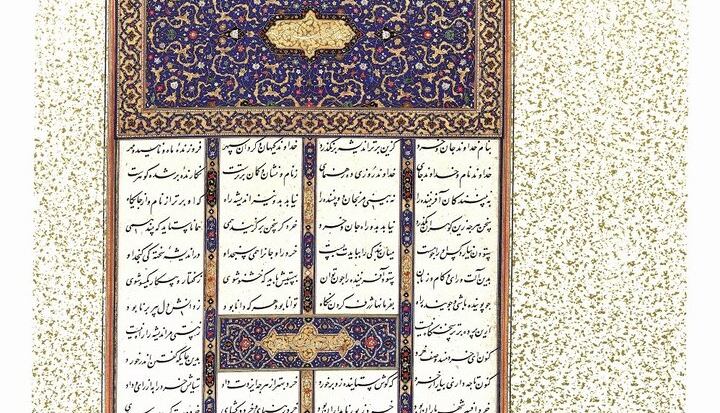 بنام خداوند جان و خرد کزین برتر اندیشه برنگذرد خداوند کیهان و کردان سپهر فروزنده ماه و ناهید و مهر
خداوند نام و خداوند جای خداوند روزی ده رهنمای ز نام و نشان و کمان برترست نکارنده بر شده کوهرست
به بینندکان آفریننده را نبینی مرنجان دو بیننده را نیابد بدو نیز اندیشه راه که او برتر از نام و از جایکاه
سخن هرچه زین کوهران بکذرد نیابد بدو راه جان و خرد خرد کر سخن برکزیند همی همانا ستاید که بیند همی
ستودن نداند کس او را چو هست میان بندکی را ببایدت بست خرد را و جان را همی سنجد او در اندیشه سخته کی کنجد او
بدین آلت و رای و کام و زبان ستود آفریننده را چون توان بهستیش باید که خستو شوی ز کفتار و پیکار یکسو شوی
باشی و جوینده راه بفرمانها ژرف کردن نکاه توانا بود هر که دانا بود ز دانش دل پیر برنا بود
ازین پرده برتر سخن کاه نیست بهستیش اندیشه را راه نیست
کنون ای خردمند وصف خرد بدین جایکه کفتن اندر خورد
کنون تا چه داری بیار از خرد که کوش نیوشنده زو برخورد خرد بهتر از هرچه ایزدت داد ستایش خرد را به از راه داد
خرد افسر شهریاران بود خرد زیور نامداران بود